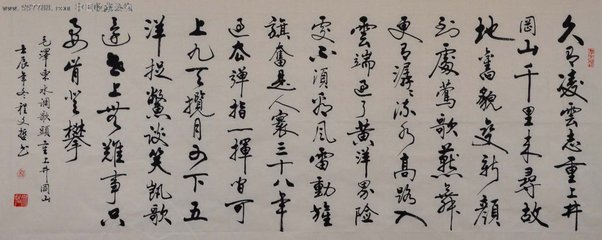 久有凌雲志重上井
岡山千里来尋故
地舊貌變新顏
到處鶯歌燕舞
更有潺潺流水高路入
雲端過了黄洋界險
處不須看風雷動旌
旗奮是人寰三十八年
過去彈指一揮间可
上九天攬月可下五
洋捉鱉談笑凱歌
還世上無難事只
要肯登攀
毛澤東水調歌頭重上井岡山
壬辰年冬程文书
www.997788.com 中国收藏热线